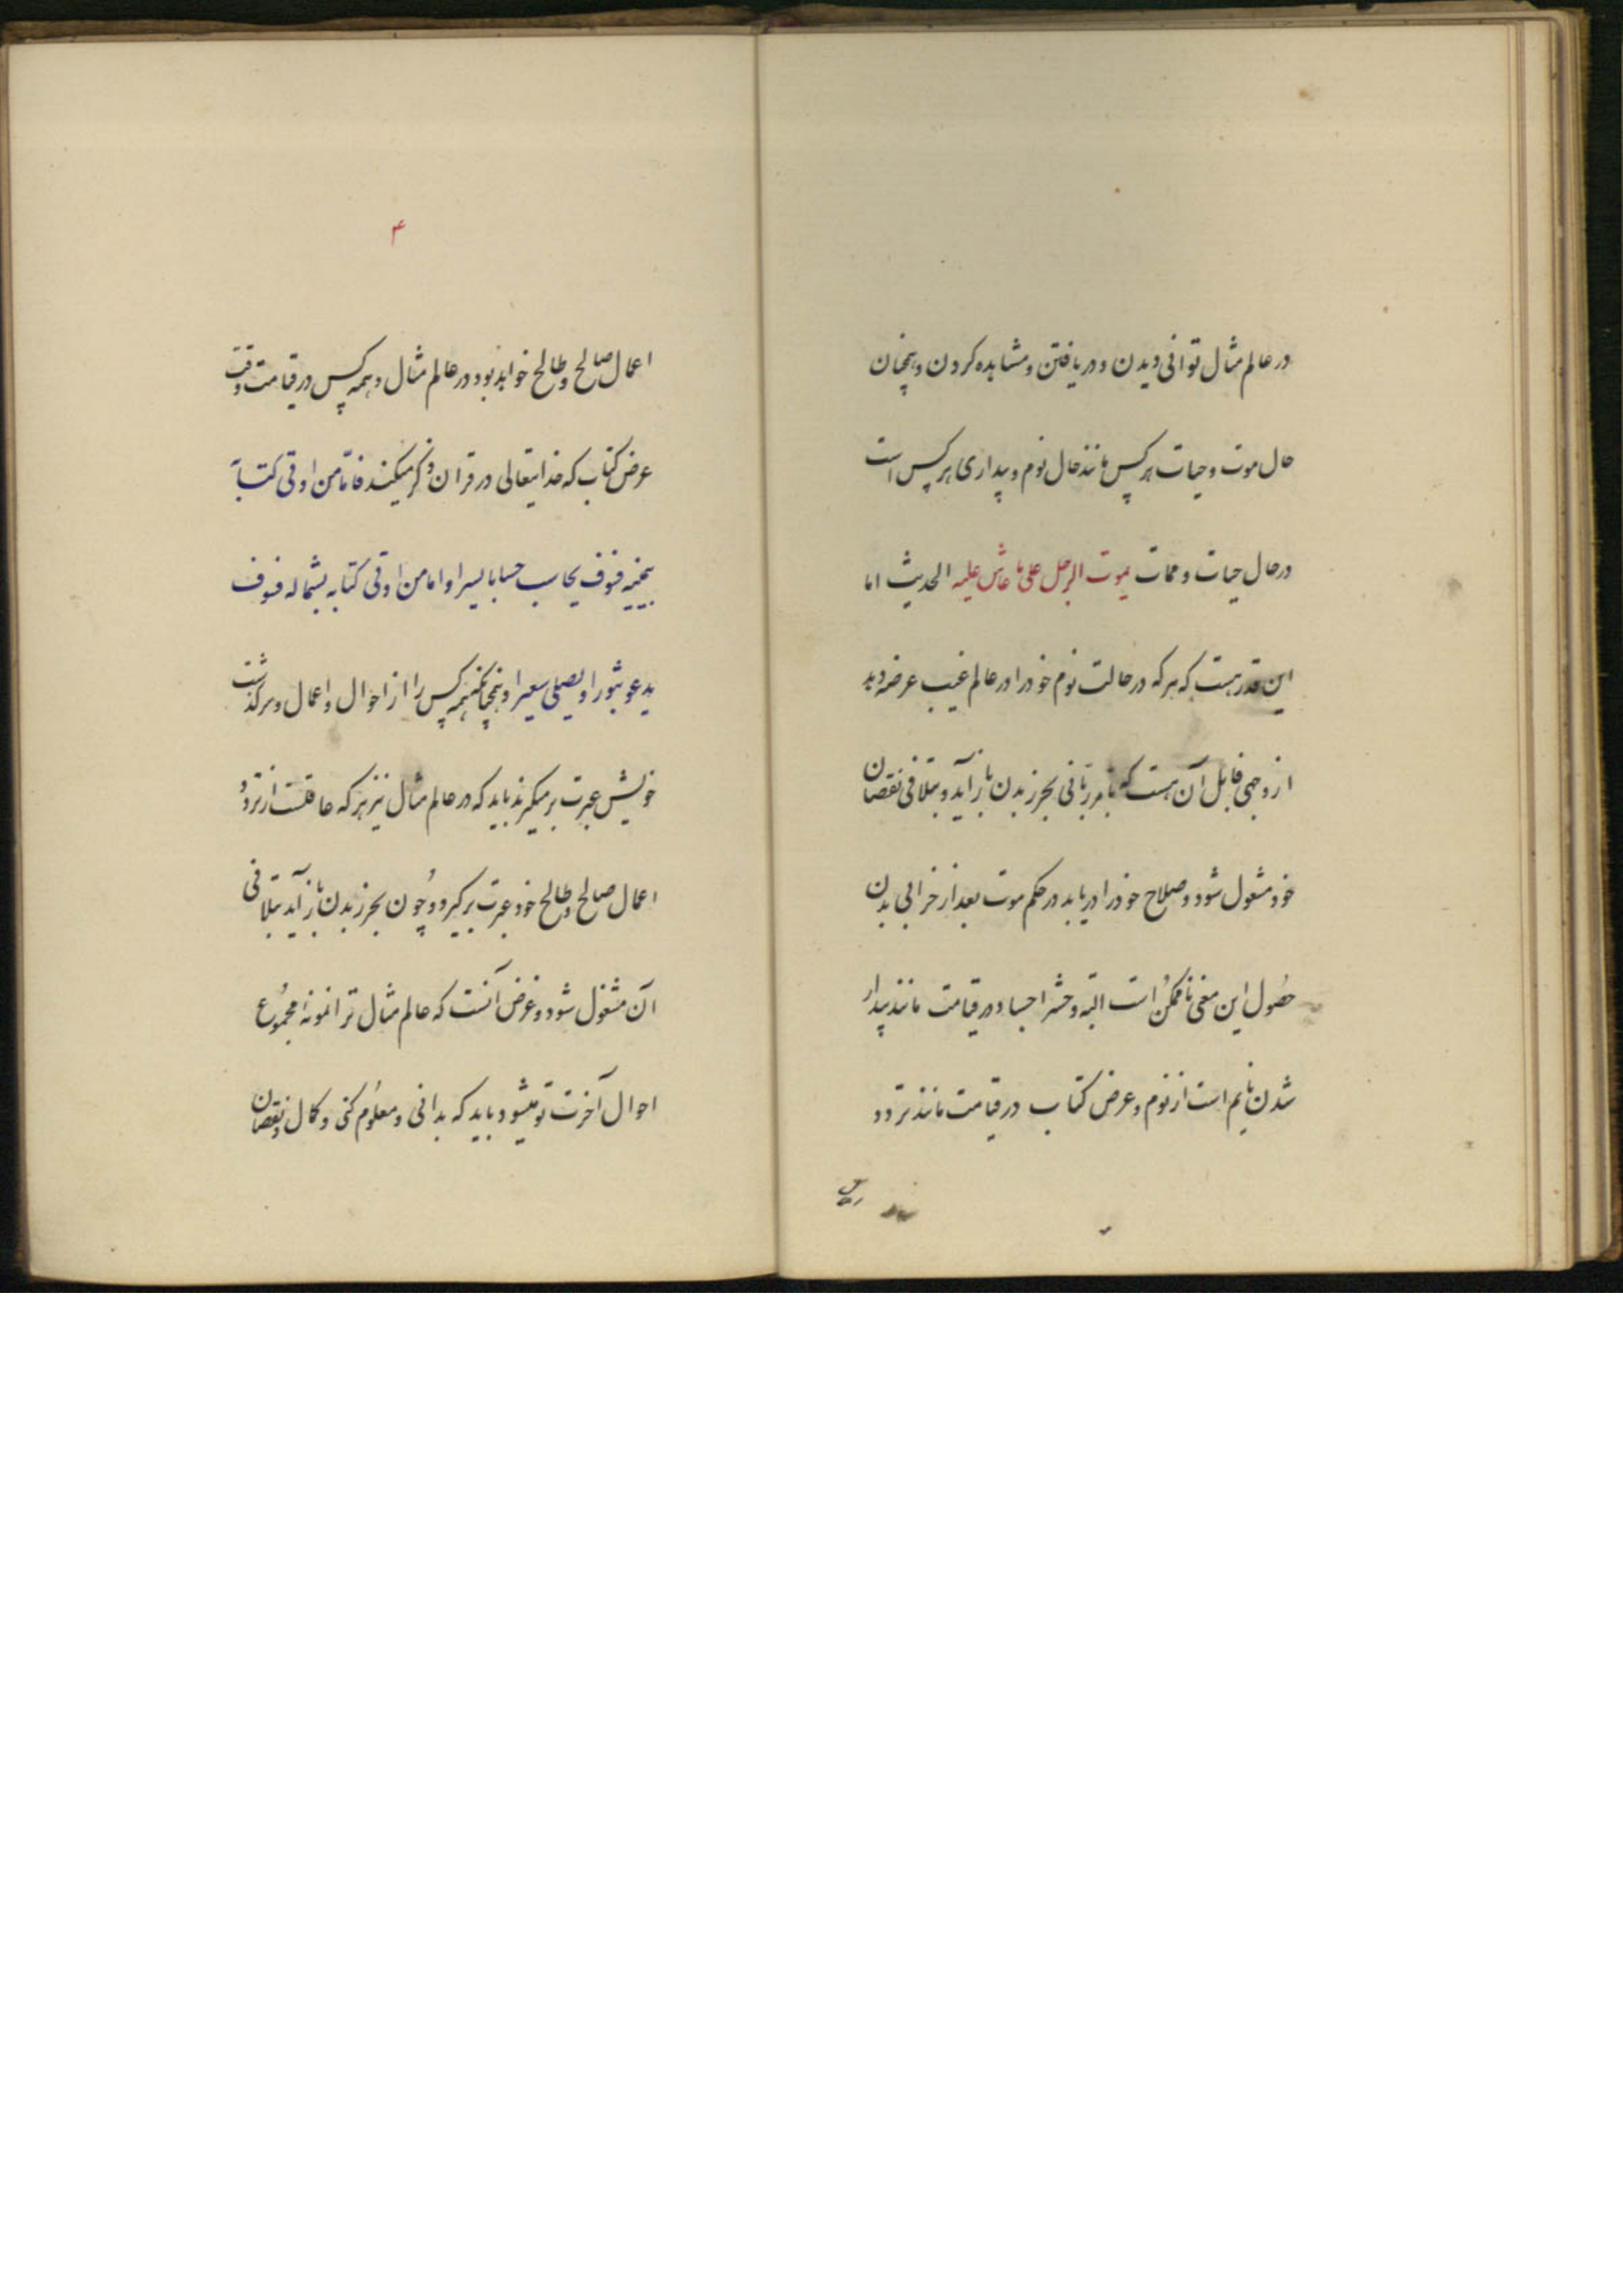 در عالم مثال توانی دیدن و دریافتن و مشاهده کردن و همچنان
حال موت و حیات هر کس مانند حال نوم و بیداری هر کس است
در حال حیات و ممات یموت الرجل علی ما عاش علیه الحدیث اما
این قدر هست که هر که در حالت نوم خود را در عالم غیب عرضه دید
از وجهی قابل آن هست که بامر ربانی بحرز بدن باز آید و بتلافی نقصان
خود مشغول شود و صلاح خود را دریابد در حکم موت بعد از خرابی بدن
حصول این معنی ناممکن است البته و حشر اجساد در قیامت مانند بیدار
شدن نایم است از نوم و عرض کتاب در قیامت مانند تردد
۴
اعمال صالح و طالح خواهد بود در عالم مثال و همه کس در قیامت وقت
عرض کتاب که خدایتعالی در قرآن ذکر میکند فامّا من اوتی کتاباً
بیمینه فسوف یحاسب حسابا یسیرا و اما من اوتی کتابه بشماله فسوف
یدعو ثبورا و یصلی سعیرا و همچنانکه همه کس را از احوال و اعمال و سرگذشت
خویش عبرت بر میگیرند باید که در عالم مثال نیز هر که عاقلست از تردد
اعمال صالح و طالح خود عبرت برگیرد و چون بحرز بدن باز آید بتلافی
آن مشغول شود و غرض آنست که عالم مثال ترا نمونه مجموع
احوال آخرت تو میشود باید که بدانی و معلوم کنی و کمال و نقصان